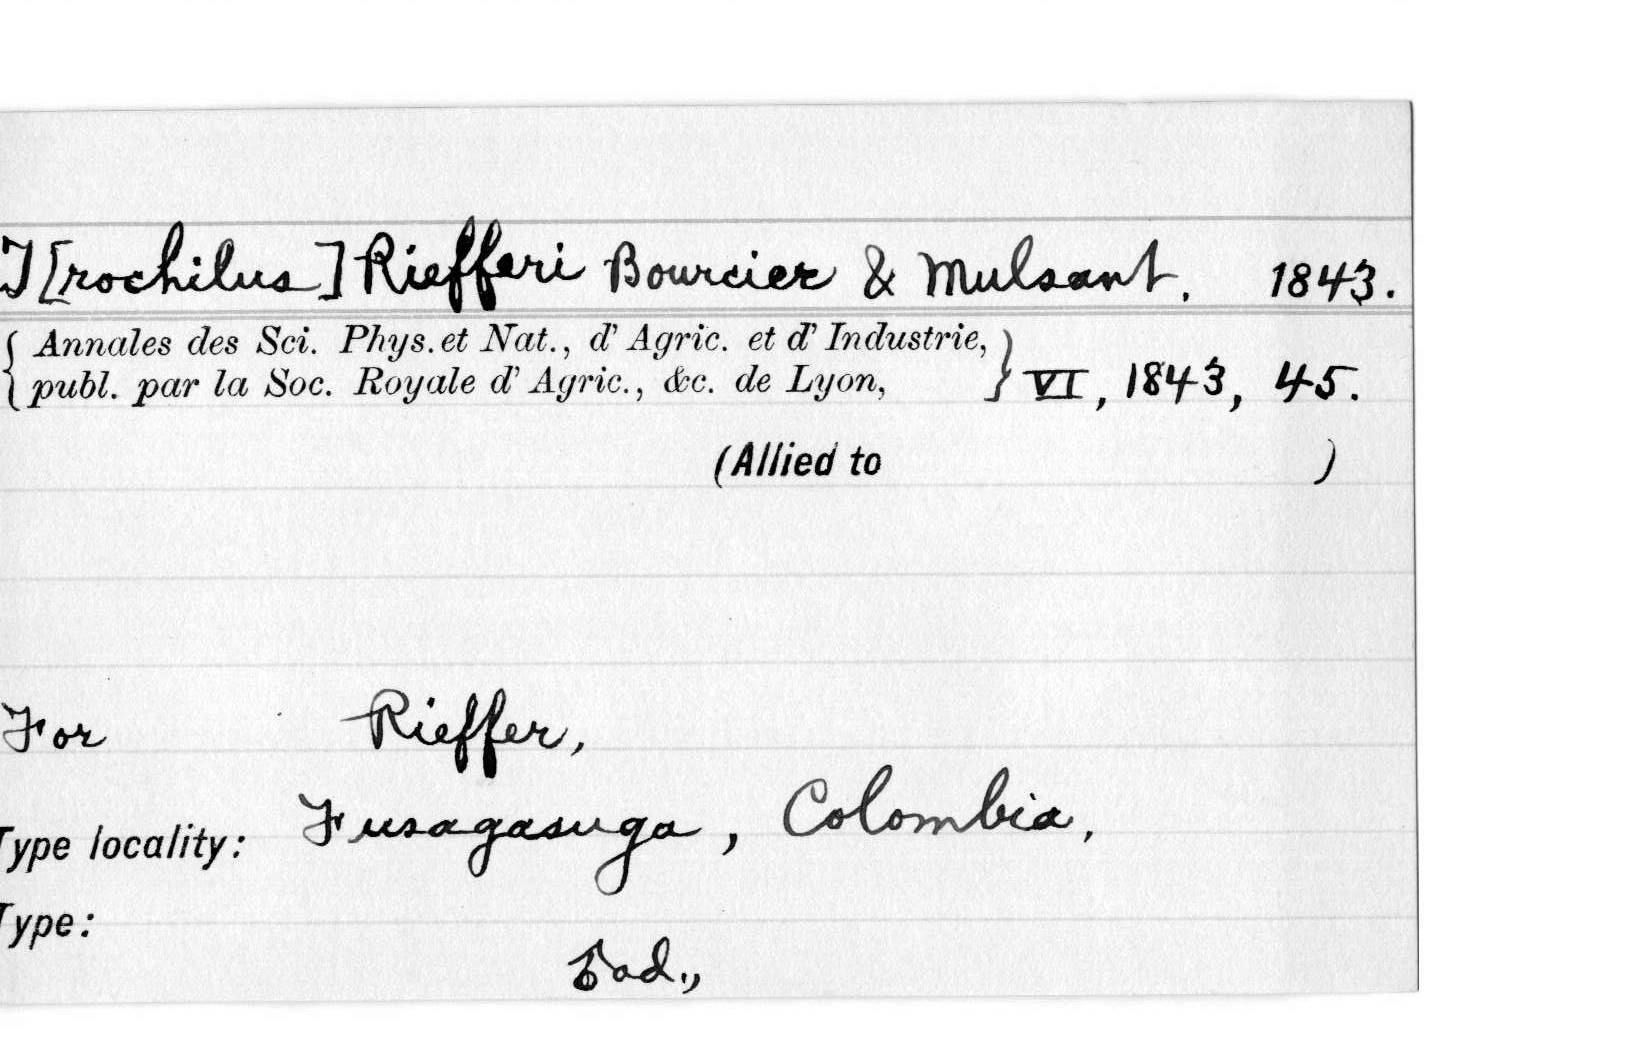 T[rochilus] Riefferi Bourcier & Mulsant. 1843.
{ Annales des Sci. Phys. et Nat., d' Agric. et d' Industrie,
publ. par la Soc. Royale d' Agric., &c. de Lyon, } VI, 1843, 45.
(Allied to )
For Rieffer,
Type locality: Fusagasuga, Colombia,
Type: